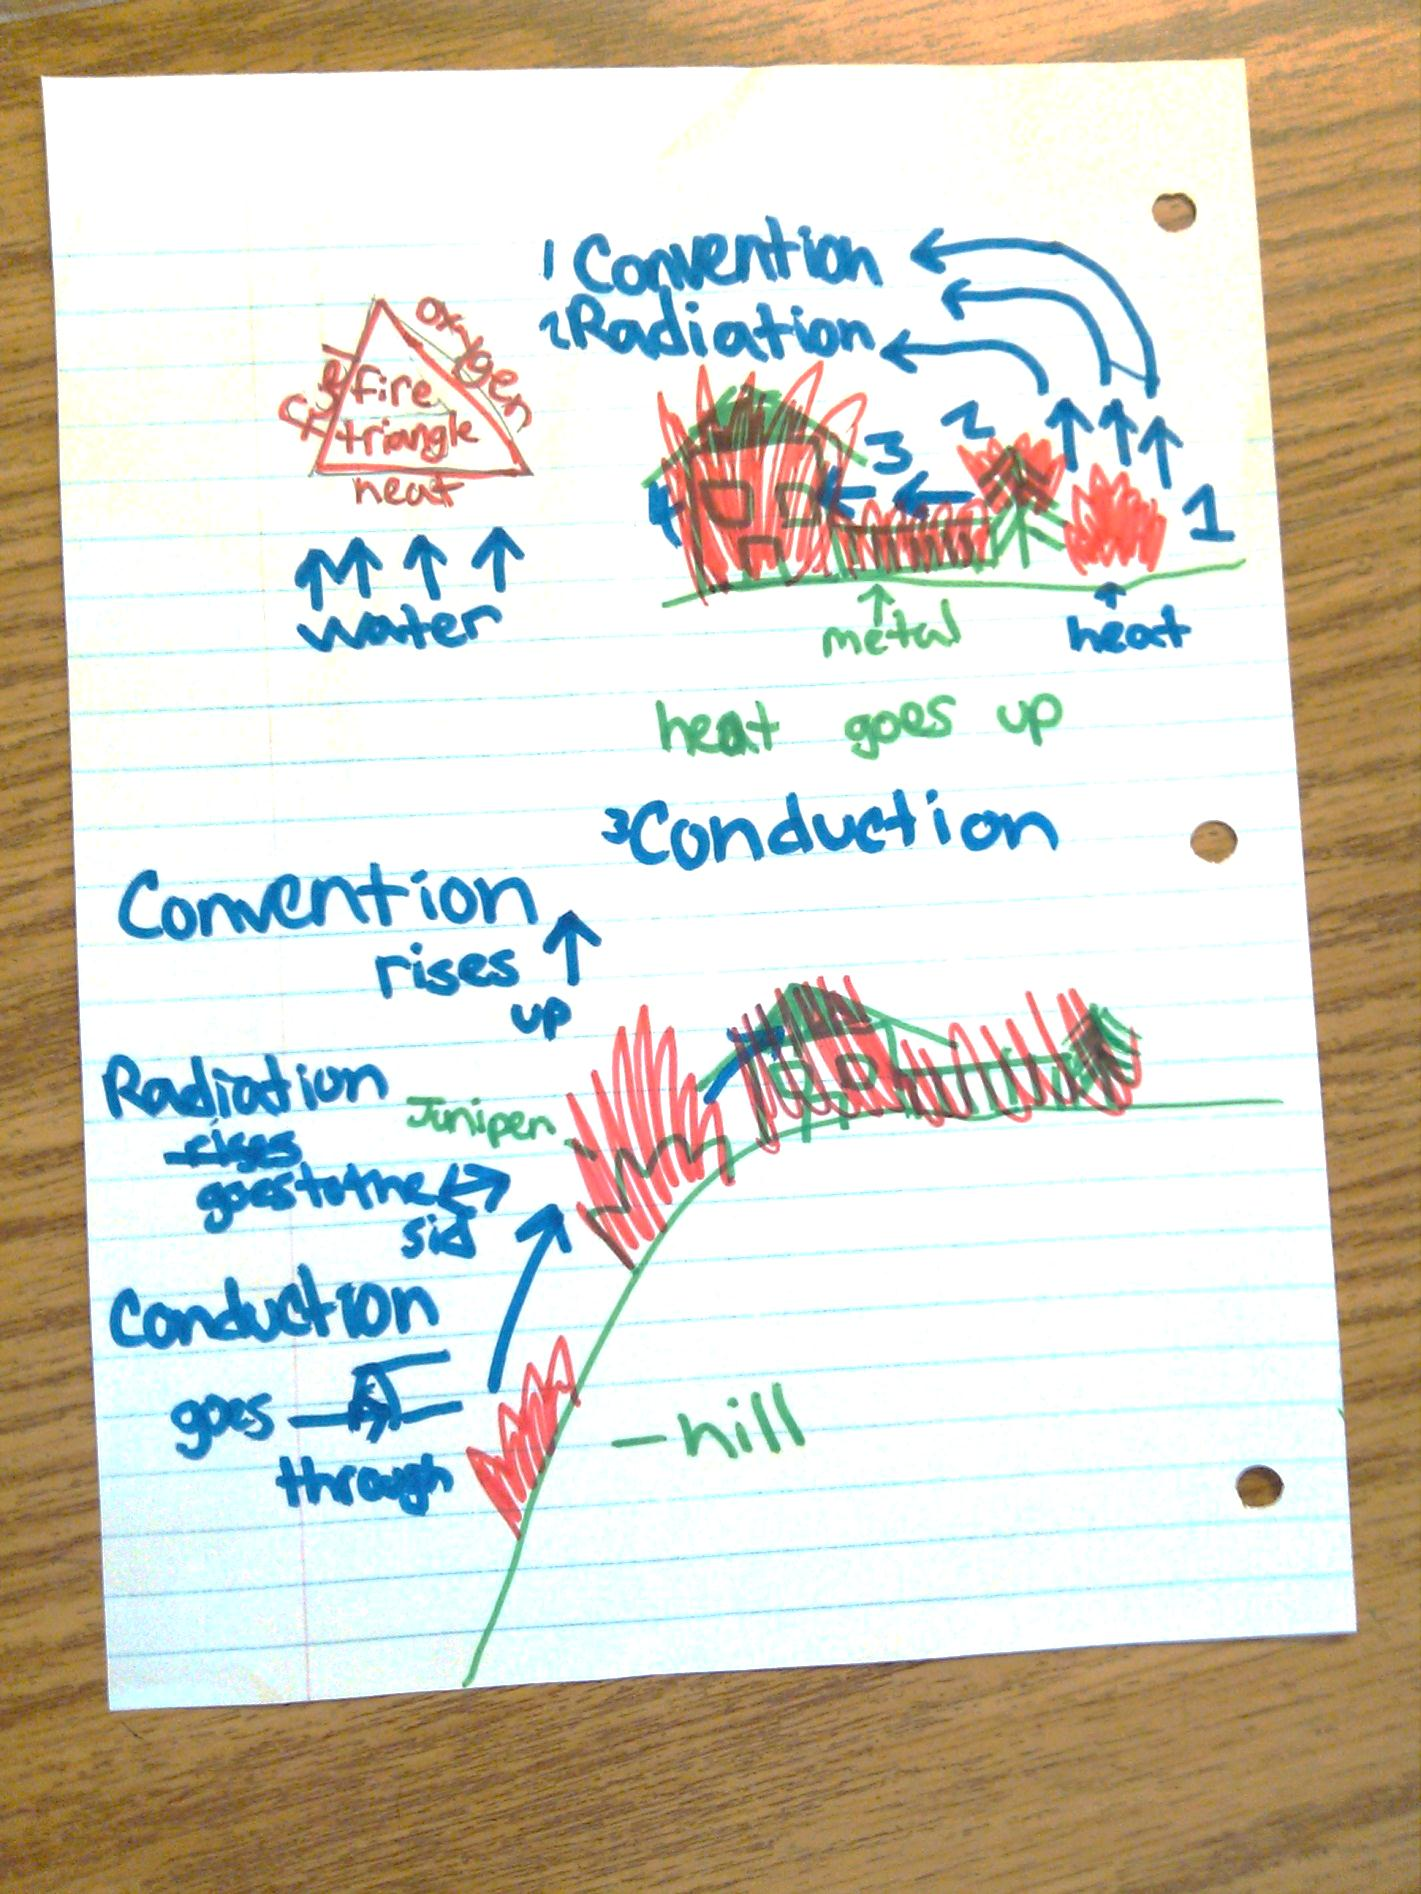 1 Convention
2 Radiation
oxygen
fuel
fire
triangle
heat
water
1
2
3
4
metal
heat
heat goes up
3 Conduction
Convention
rises
up
Radiation
rises
goes to the
sid
Junipen
Conduction
goes
through
- hill